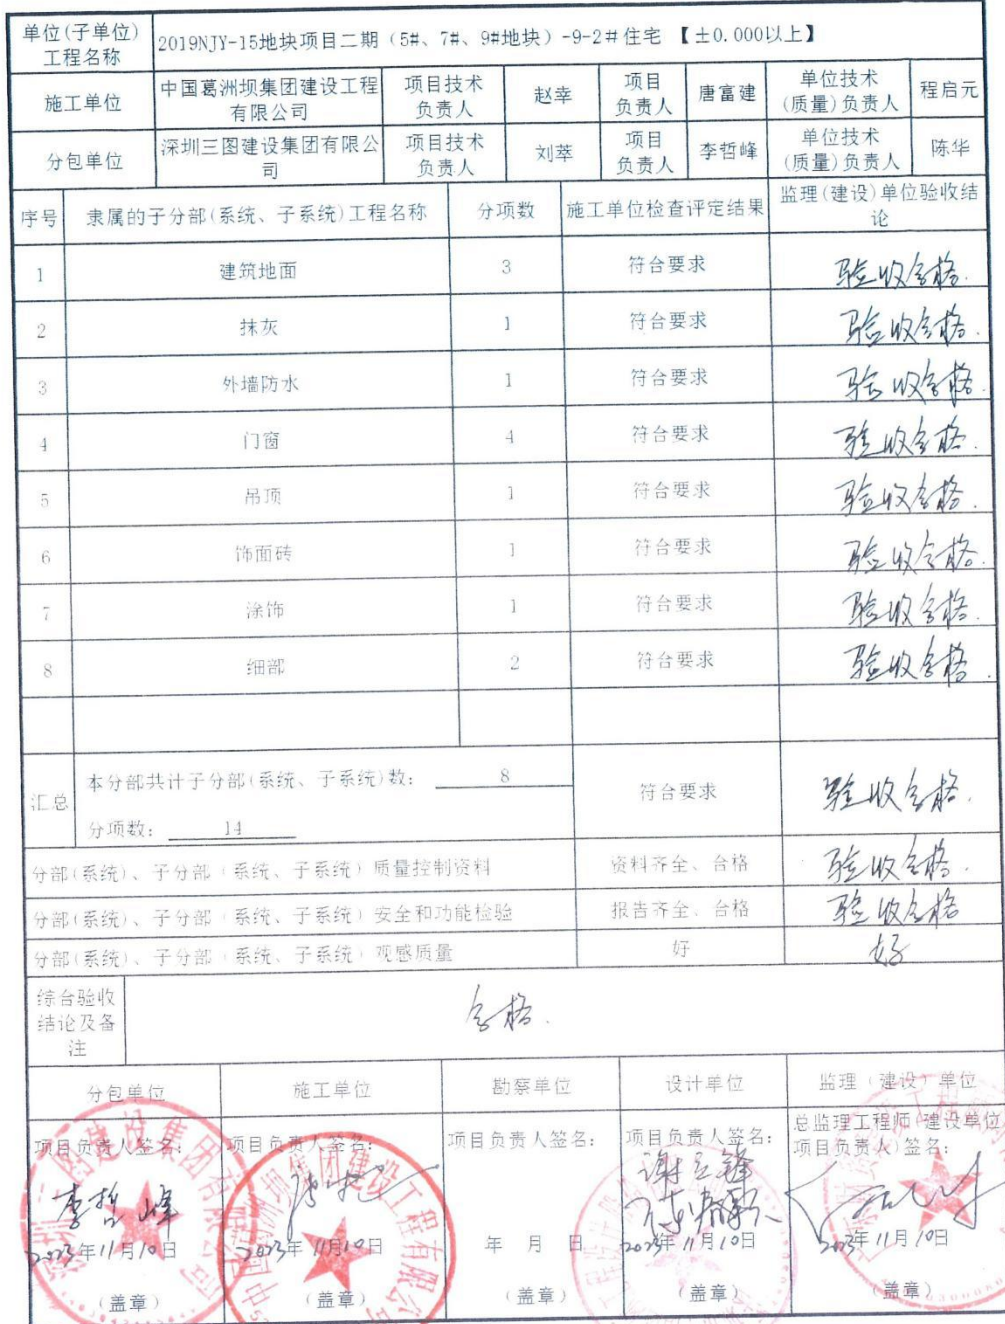 单位(子单位)
工程名称
2019NJY-15地块项目二期（5#、7#、9#地块）-9-2#住宅 【±0.000以上】
施工单位
中国葛洲坝集团建设工程
有限公司
项目技术
负责人
赵幸
项目
负责人
唐富建
单位技术
(质量)负责人
程启元
分包单位
深圳三图建设集团有限公
司
项目技术
负责人
刘萃
项目
负责人
李哲峰
单位技术
(质量)负责人
陈华
序号
隶属的子分部(系统、子系统)工程名称
分项数
施工单位检查评定结果
监理(建设)单位验收结
论
1 建筑地面 3 符合要求 验收合格.
2 抹灰 1 符合要求 验收合格.
3 外墙防水 1 符合要求 验收合格.
4 门窗 4 符合要求 验收合格.
5 吊顶 1 符合要求 验收合格.
6 饰面砖 1 符合要求 验收合格.
7 涂饰 1 符合要求 验收合格.
8 细部 2 符合要求 验收合格.
汇总
本分部共计子分部(系统、子系统)数： 8
分项数： 14
符合要求
验收合格.
分部(系统)、子分部（系统、子系统）质量控制资料 资料齐全、合格 验收合格.
分部(系统)、子分部（系统、子系统）安全和功能检验 报告齐全、合格 验收合格
分部(系统)、子分部（系统、子系统）观感质量 好 好
综合验收
结论及备
注
合格.
分包单位 施工单位 勘察单位 设计单位 监理（建设）单位
项目负责人签名：
李哲峰
2023年11月10日
（盖章）
项目负责人签名：
2023年11月10日
（盖章）
项目负责人签名：
年 月 日
（盖章）
项目负责人签名：
谢立锋
2023年11月10日
（盖章）
总监理工程师(建设单位
项目负责人)签名：
2023年11月10日
（盖章）